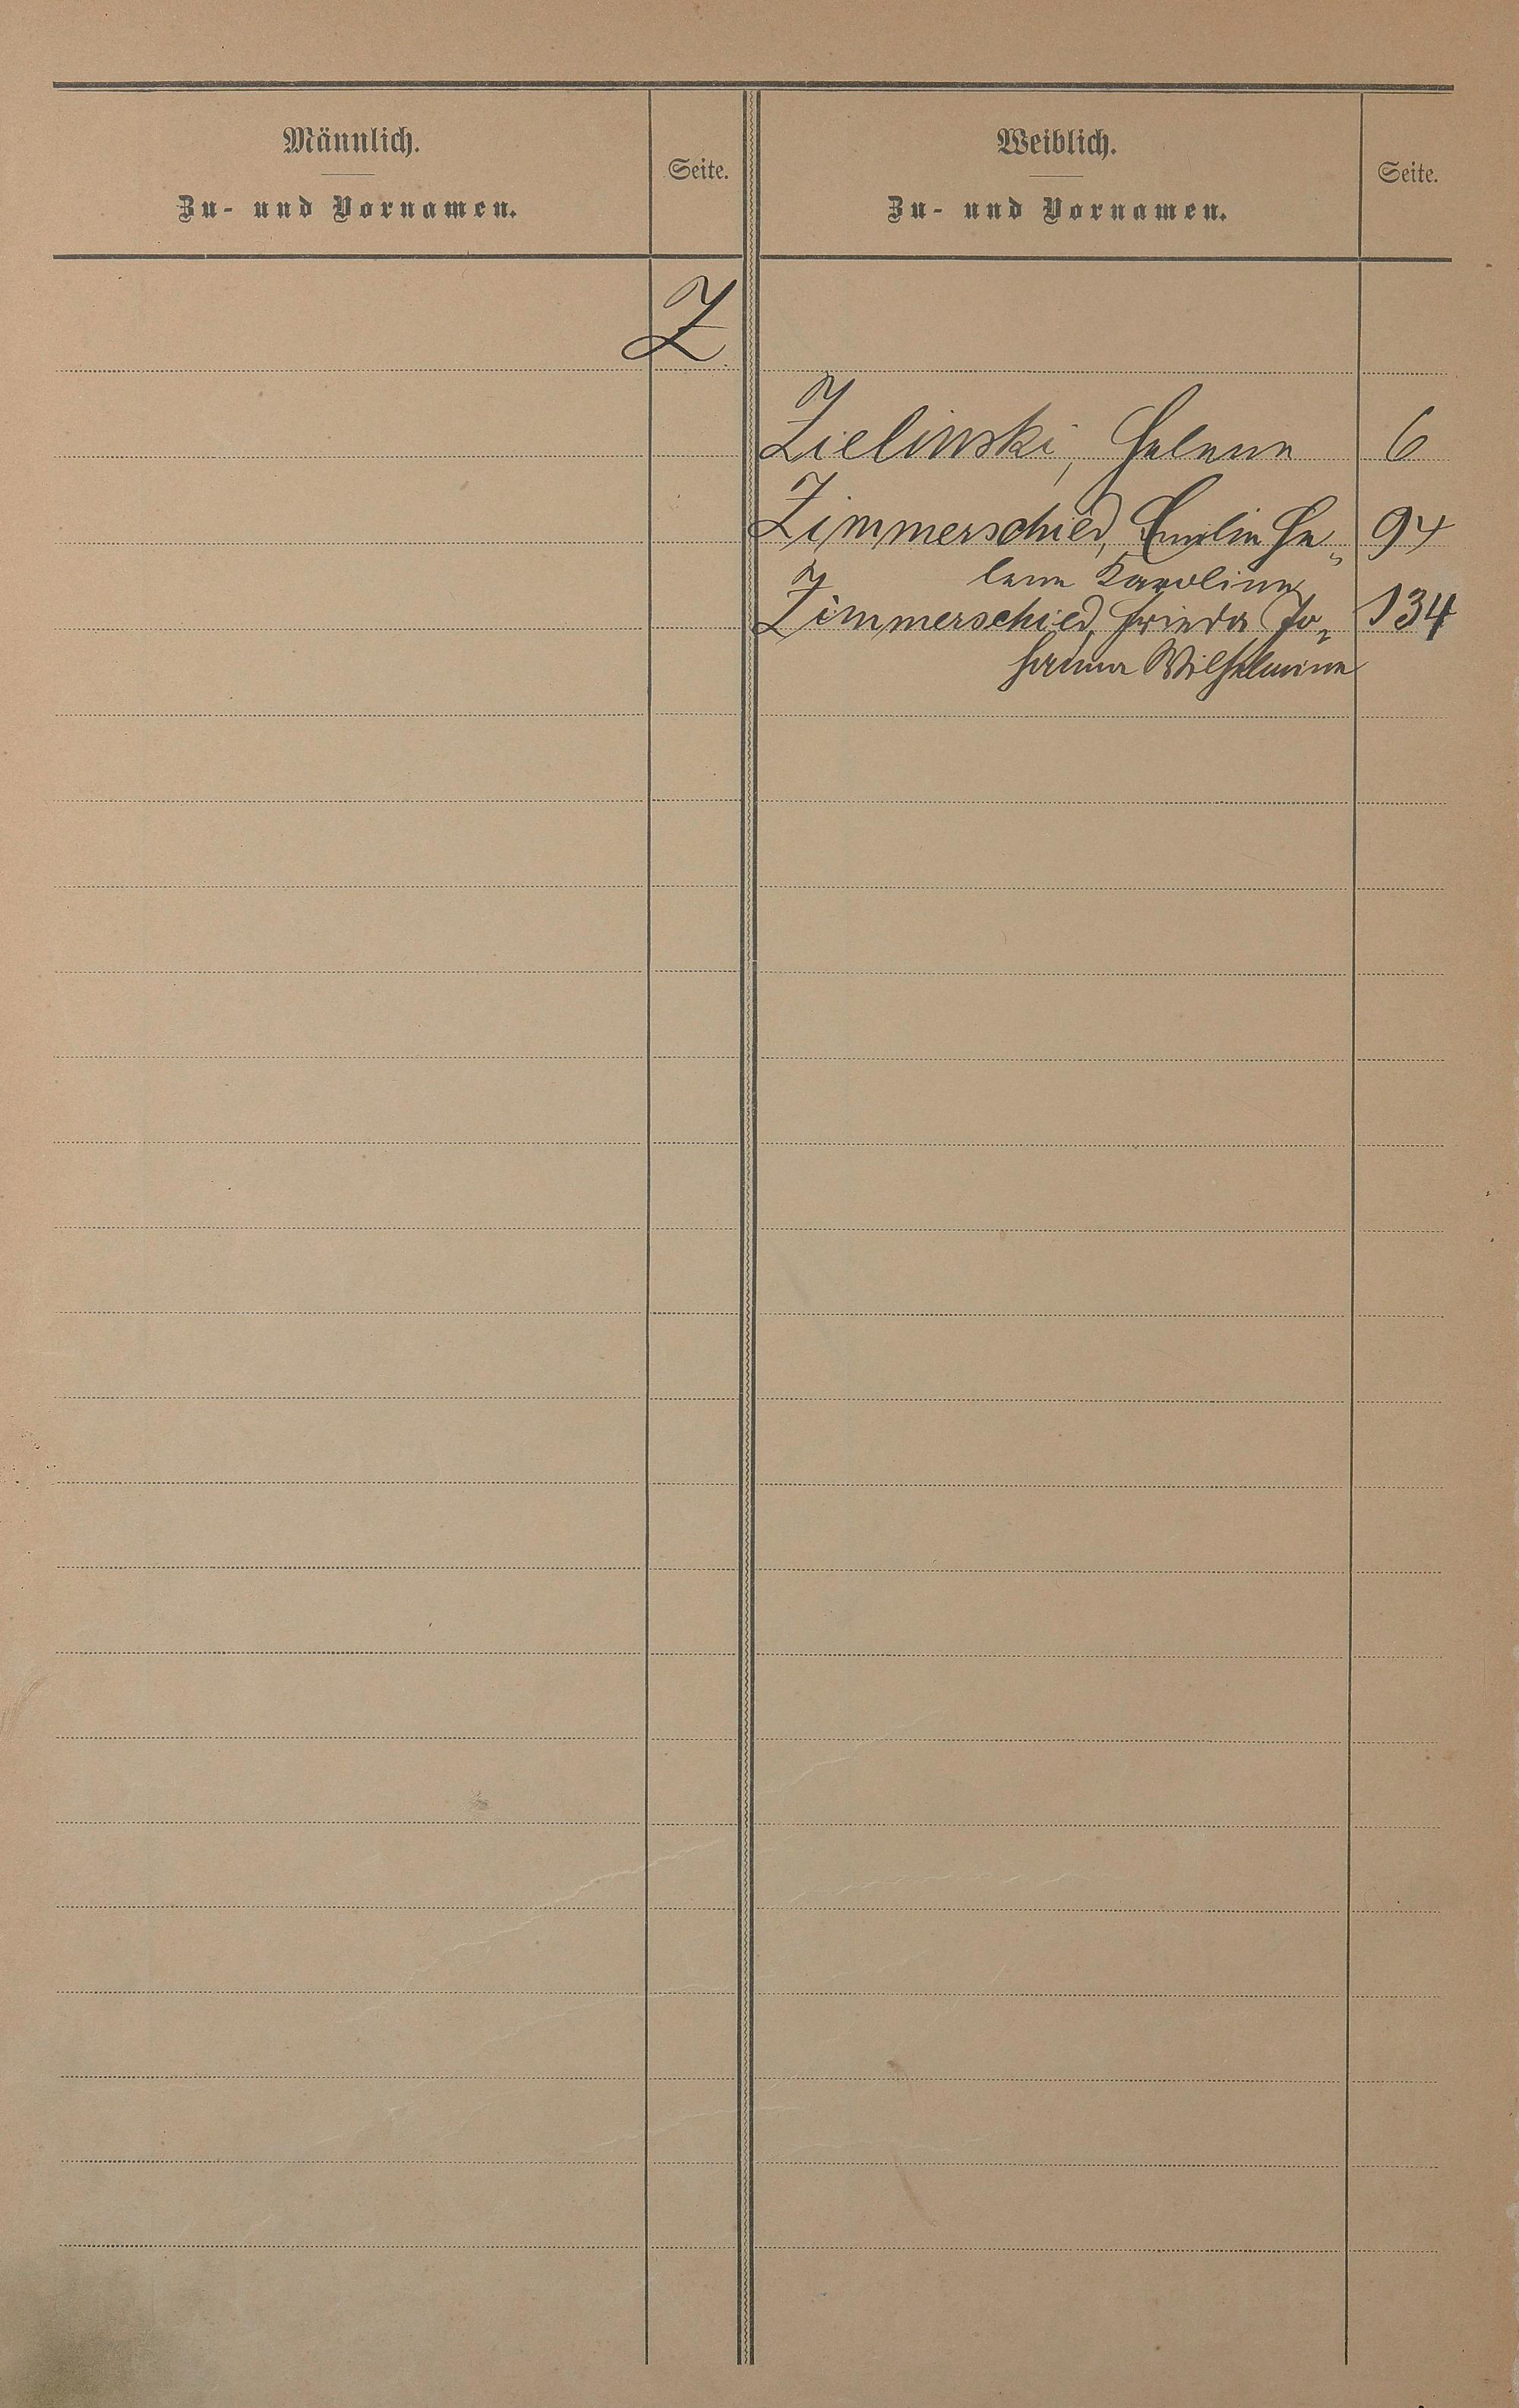 Männlich.
Zu- und Vornamen.
Seite.
Weiblich.
Zu- und Vornamen.
Seite.
Z
Zielinski, Helene 6
Zimmerschied, Emilie He„ 94
lene Karoline
Zimmerschied, Frieda Jo„ 134
hanna Wilhelmine